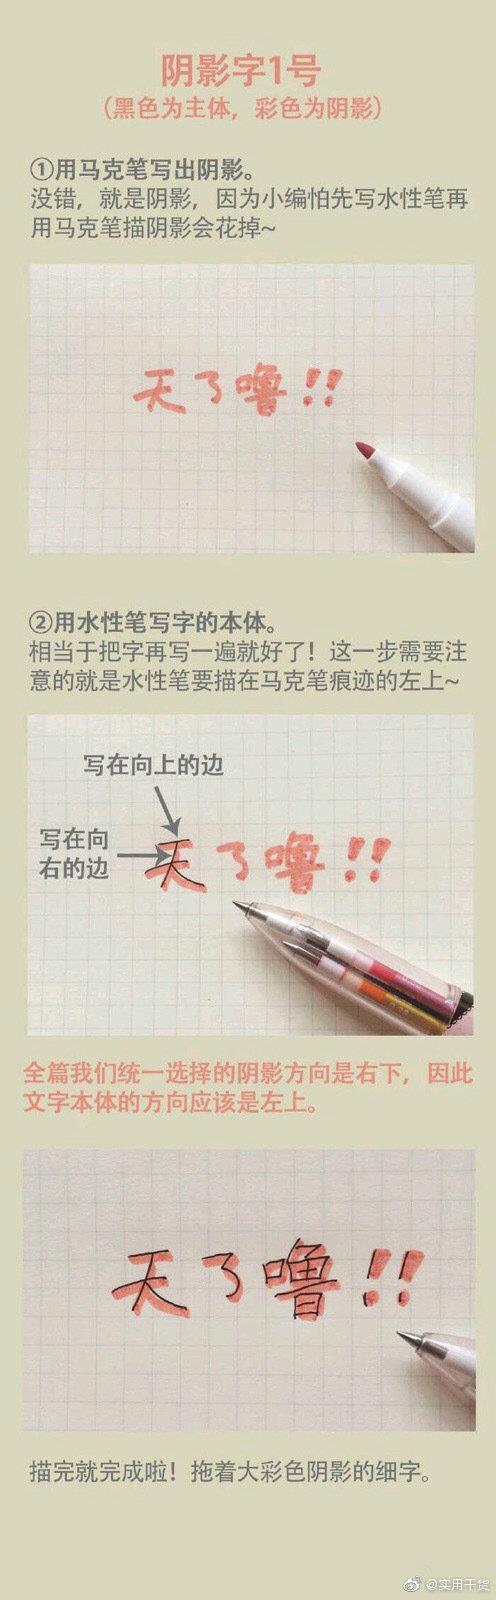 阴影字1号
（黑色为主体，彩色为阴影）
①用马克笔写出阴影。
没错，就是阴影，因为小编怕先写水性笔再
用马克笔描阴影会花掉~
天了噜!!
②用水性笔写字的本体。
相当于把字再写一遍就好了！这一步需要注
意的就是水性笔要描在马克笔痕迹的左上~
写在向上的边
写在向
右的边
天了噜!!
全篇我们统一选择的阴影方向是右下，因此
文字本体的方向应该是左上。
天了噜!!
描完就完成啦！拖着大彩色阴影的细字。
@实用干货